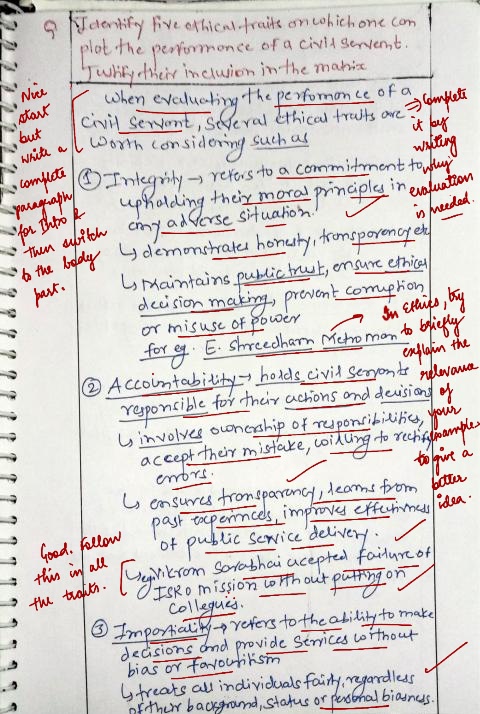 Q Identify five ethical traits on which one can
plot the performance of a civil servent.
Justify their inclusion in the matrix
When evaluating the performance of a
civil servant, several ethical traits are
worth considering such as
① Integrity → refers to a commitment to
upholding their moral principles in
any adverse situation.
↳ demonstrates honesty, transparency etc
↳ Maintains public trust, ensure ethical
decision making, prevent corruption
or misuse of power
for eg. E. Shreedharn Metroman
② Accountability → holds civil servants
responsible for their actions and decisions
↳ involves ownership of responsibilities,
accept their mistake, willing to rectify
errors.
↳ ensures transparency, learns from
past experinces, improves effectivness
of public service delivery.
↳ eg Vikrom Sarabhai accepted failure of
ISRO mission without putting on
collegues.
③ Impartiality → refers to the ability to make
decisions and provide services without
bias or favouritism
↳ treats all individuals fairly, regardless
of their background, status or personal biasness.
Nice
start
but
write a
complete
paragraph
for Intro &
then switch
to the body
part.
⇒ Complete
it by
writing
why
evaluation
is needed.
In Ethics, try
to briefly
explain the
relevance
of
your
example
to give a
better
idea.
Good. Follow
this in all
the traits.